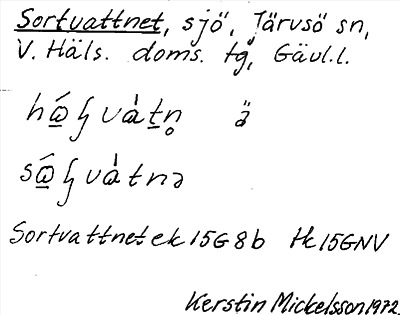 Sortvattnet, sjö, Järvsö sn,
V. Häls. doms. tg, Gävl.l.
ä
Sortvattnet ek 15G8b Hk 15GNV
Kerstin Mickelsson 1972.